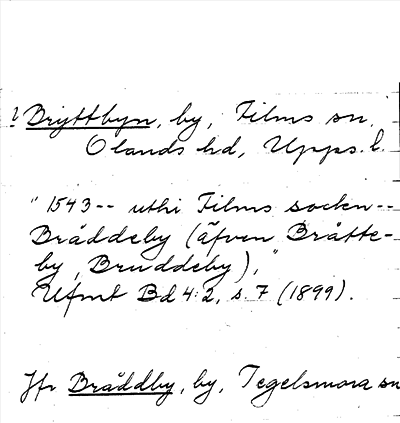 ? Bryttbyn, by, Films sn,
Olands hd, Upps. l.
"1543-- uthi Films socken--
Bräddeby (äfven Brätte-
by, Bruddeby),"
Ufmt Bd 4:2, s. 7 (1899).
Jfr Bräddby, by, Tegelsmora sn